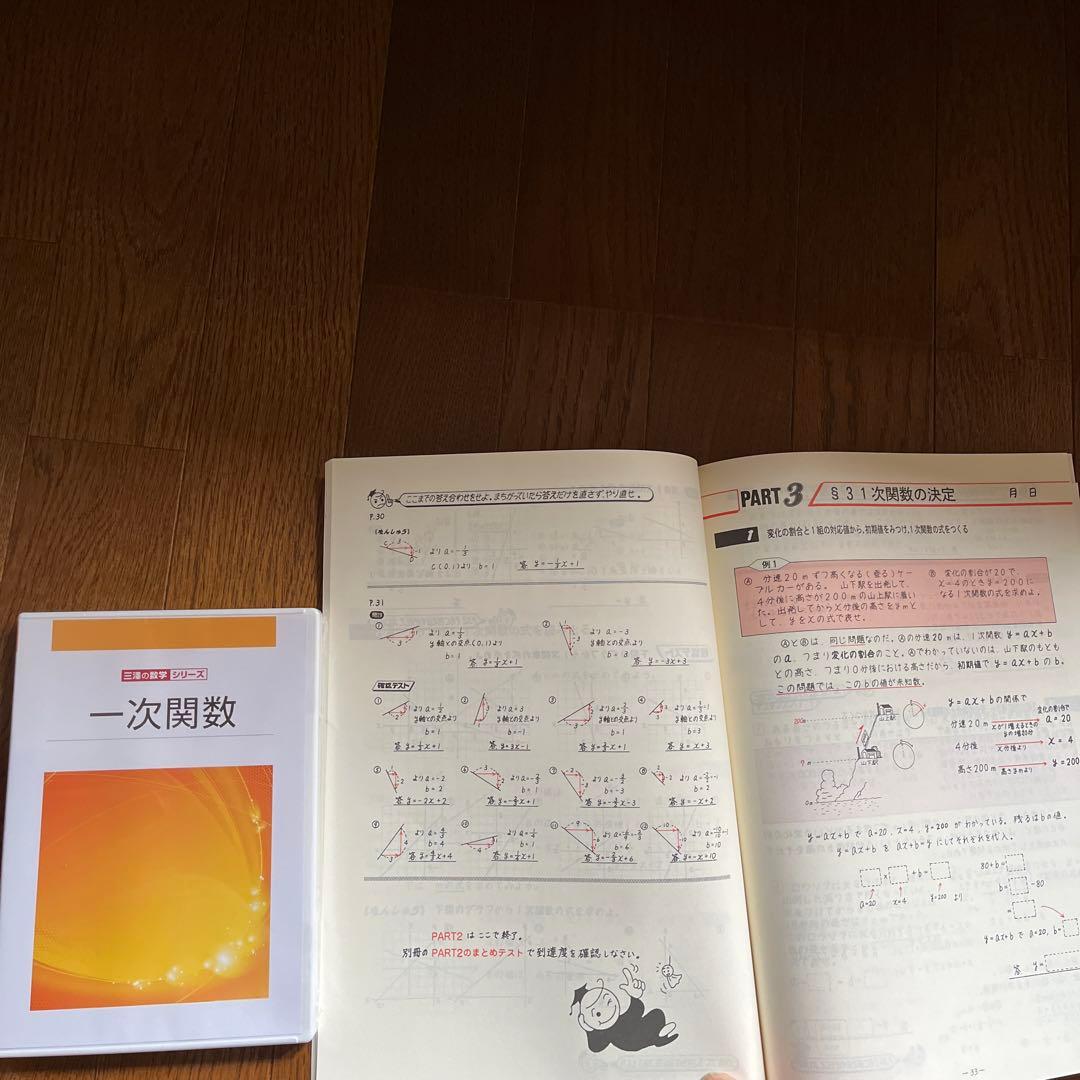 三澤の数学 シリーズ
一次関数
ここまでの答え合わせをせよ。まちがっていたら答えだけを直さず、やり直せ。
P.30
(れんしゅう)
より a=-1/3
C(0,1)より b=1
答 y=-1/3x+1
P.31
① y軸との交点(0,1)より
b=1
答 y=1/2x+1
② より a=-3
y軸との交点より
b=3
答 y=-3x+3
確認テスト
① y軸との交点より
b=1
② より a=3
y軸との交点より
b=-1
答 y=3x-1
③ y軸との交点より
b=1
④ y軸との交点より
b=3
答 y=x+3
⑤ より a=-2
b=2
答 y=-2x+2
⑥ b=1
答 y=-2/3x+1
⑦ b=-3
⑧ b=2
答 y=-x+2
⑨ より a=4/3
b=4
答 y=4/3x+4
⑩ より a=1/4
b=1
答 y=1/4x+1
⑪ b=6
⑫ b=10
答 y=-x+10
PART2 はここで終了。
別冊のPART2のまとめテストで到達度を確認しなさい。
PART3 §3 1次関数の決定 月 日
1 変化の割合と1組の対応値から、初期値をみつけ、1次関数の式をつくる
例1
Ⓐ 分速20mずつ高くなる(登る)ケー
ブルカーがある。山下駅を出発して、
4分後に高さが200mの山上駅に着い
た。出発してからx分後の高さをymと
して、yをxの式で表せ。
Ⓑ 変化の割合が20で、
x=4のときy=200に
なる1次関数の式を求めよ。
ⒶとⒷは、同じ問題なのだ。Ⓐの分速20mは、1次関数 y=ax+b
のa、つまり変化の割合のこと。Ⓐでわかっていないのは、山下駅のもとも
との高さ、つまり0分後における高さだから、初期値で y=ax+b のb。
この問題では、このbの値が未知数。
y=ax+b の関係で
200m
山上駅
?m
山下駅
0m
分速20m
xが1増えるときの
yの増加分
変化の割合で
a=20
4分後 x分後より x=4
高さ200m 高さymより y=200
y=ax+b で a=20, x=4, y=200 がわかっている。残るはbの値。
y=ax+b を ax+b=y にしてそれぞれを代入。
× +b= より
a=20 x=4 y=200
80+b=
b= -80
=
y=ax+b で a=20, b=
答 y=
-33-